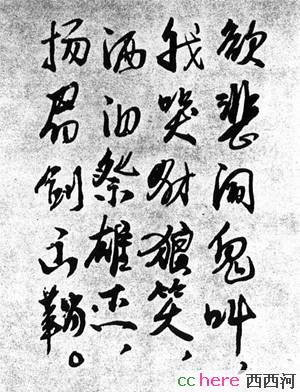 欲悲闻鬼叫,
我哭豺狼笑,
洒泪祭雄杰,
扬眉剑出鞘。
cchere 西西河